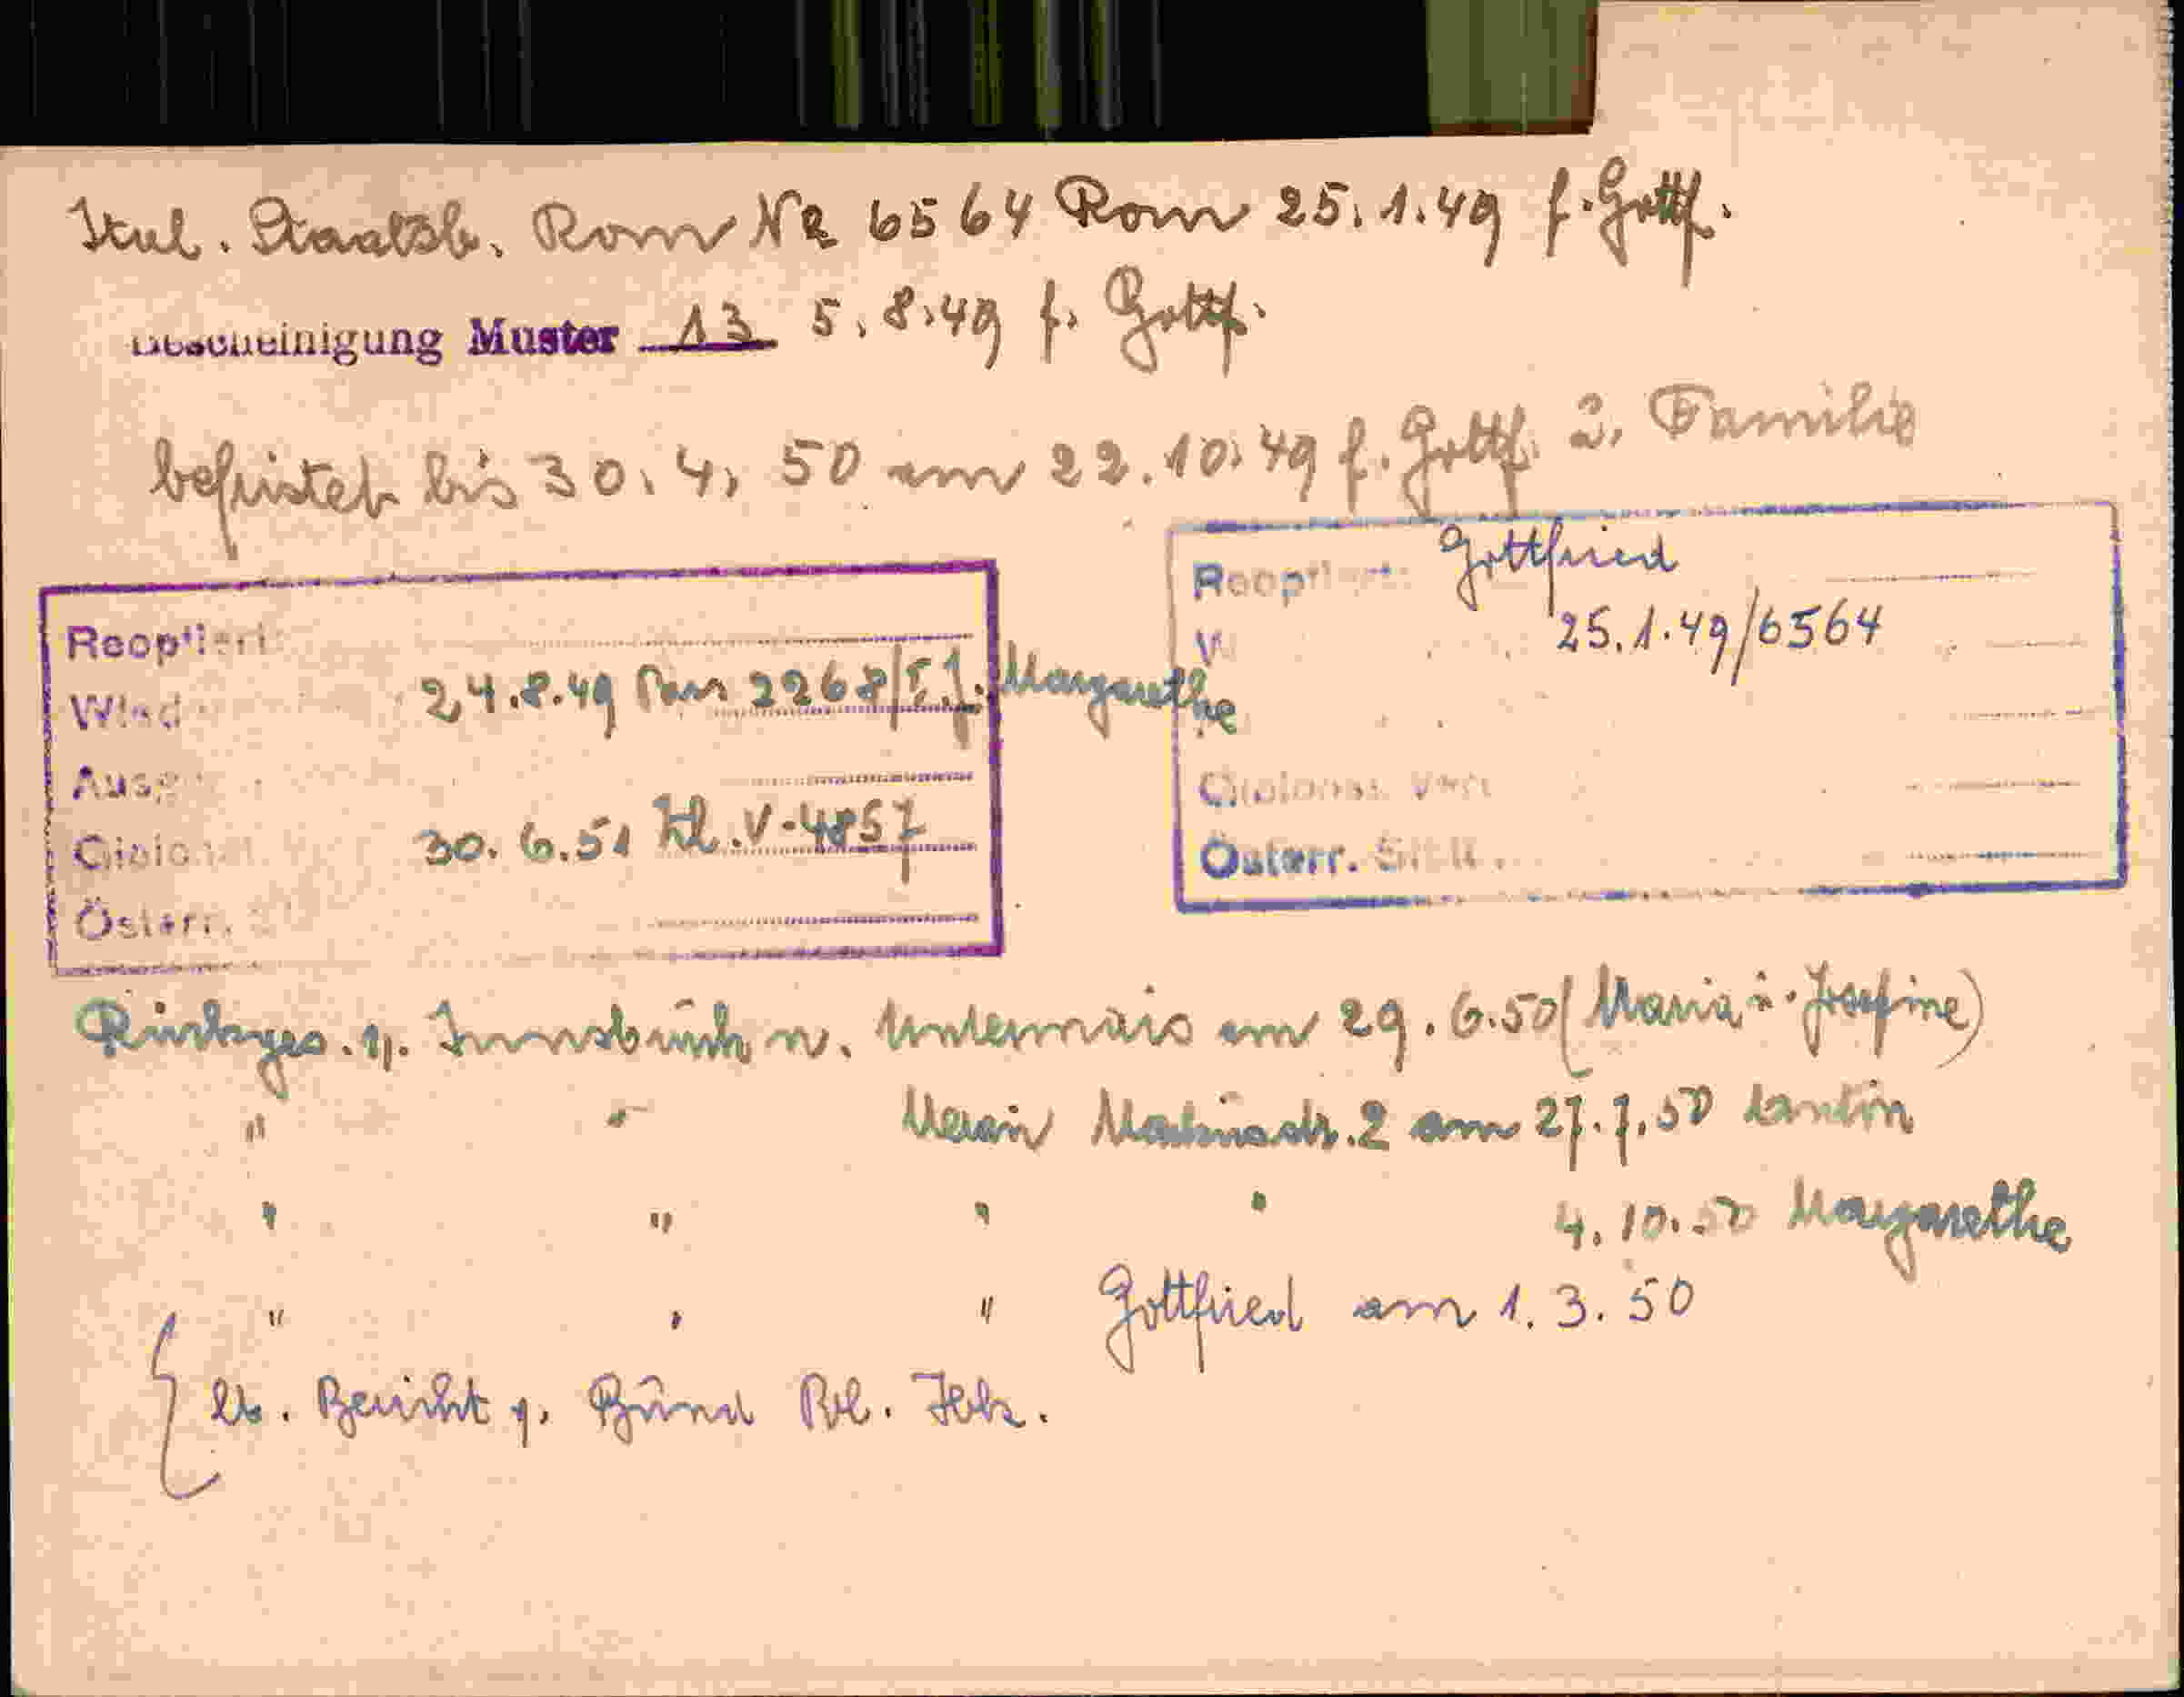 Ital. Staatsb. Rom Nr 6564 Rom 25.1.49 f. Gottf.
Bescheinigung Muster 13 5.8.49 f. Gottf.
befristet bis 30.4.50 am 22.10.49 f. Gottf. u. Familie
Reoptiert
24.8.49 Rom 2268/ Margarethe
30.6.51 V-4857
Österr.
Reoptiert: Gottfried
25.1.49/6564
Österr.
Rückges. v. Innsbruck n. Untermais am 29.6.50 (Maria u. Josefine)
" " Meran 2 am 27.7.50
" " " " 4.10.50 Margarethe
" " " Gottfried am 1.3.50
lt. Bericht v. Ibk.